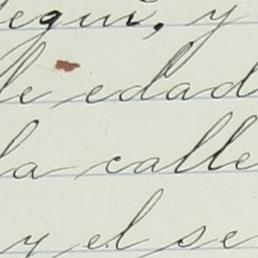 egui, y
de edad
la calle
y el se